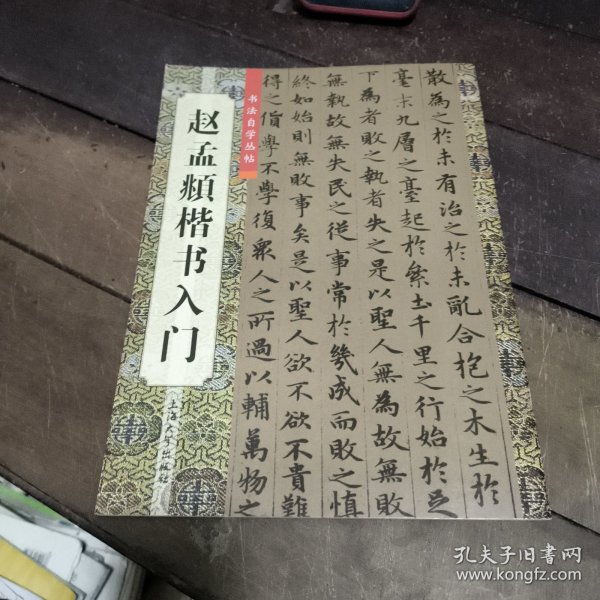 赵孟頫楷书入门
上海大学出版社
书法自学丛帖
散為之於未有治之於未亂合抱之木生於
毫末九層之臺起於絫土千里之行始於足
下為者敗之執者失之是以聖人無為故無敗
無執故無失民之從事常於幾成而敗之慎
終如始則無敗事矣是以聖人欲不欲不貴難
得之貨學不學復眾人之所過以輔萬物之
孔夫子旧书网
www.kongfz.com